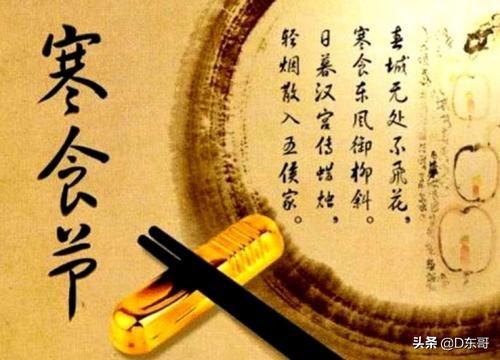 寒食节
春城无处不飞花,
寒食东风御柳斜。
日暮汉宫传蜡烛,
轻烟散入五侯家。
头条 @D东哥